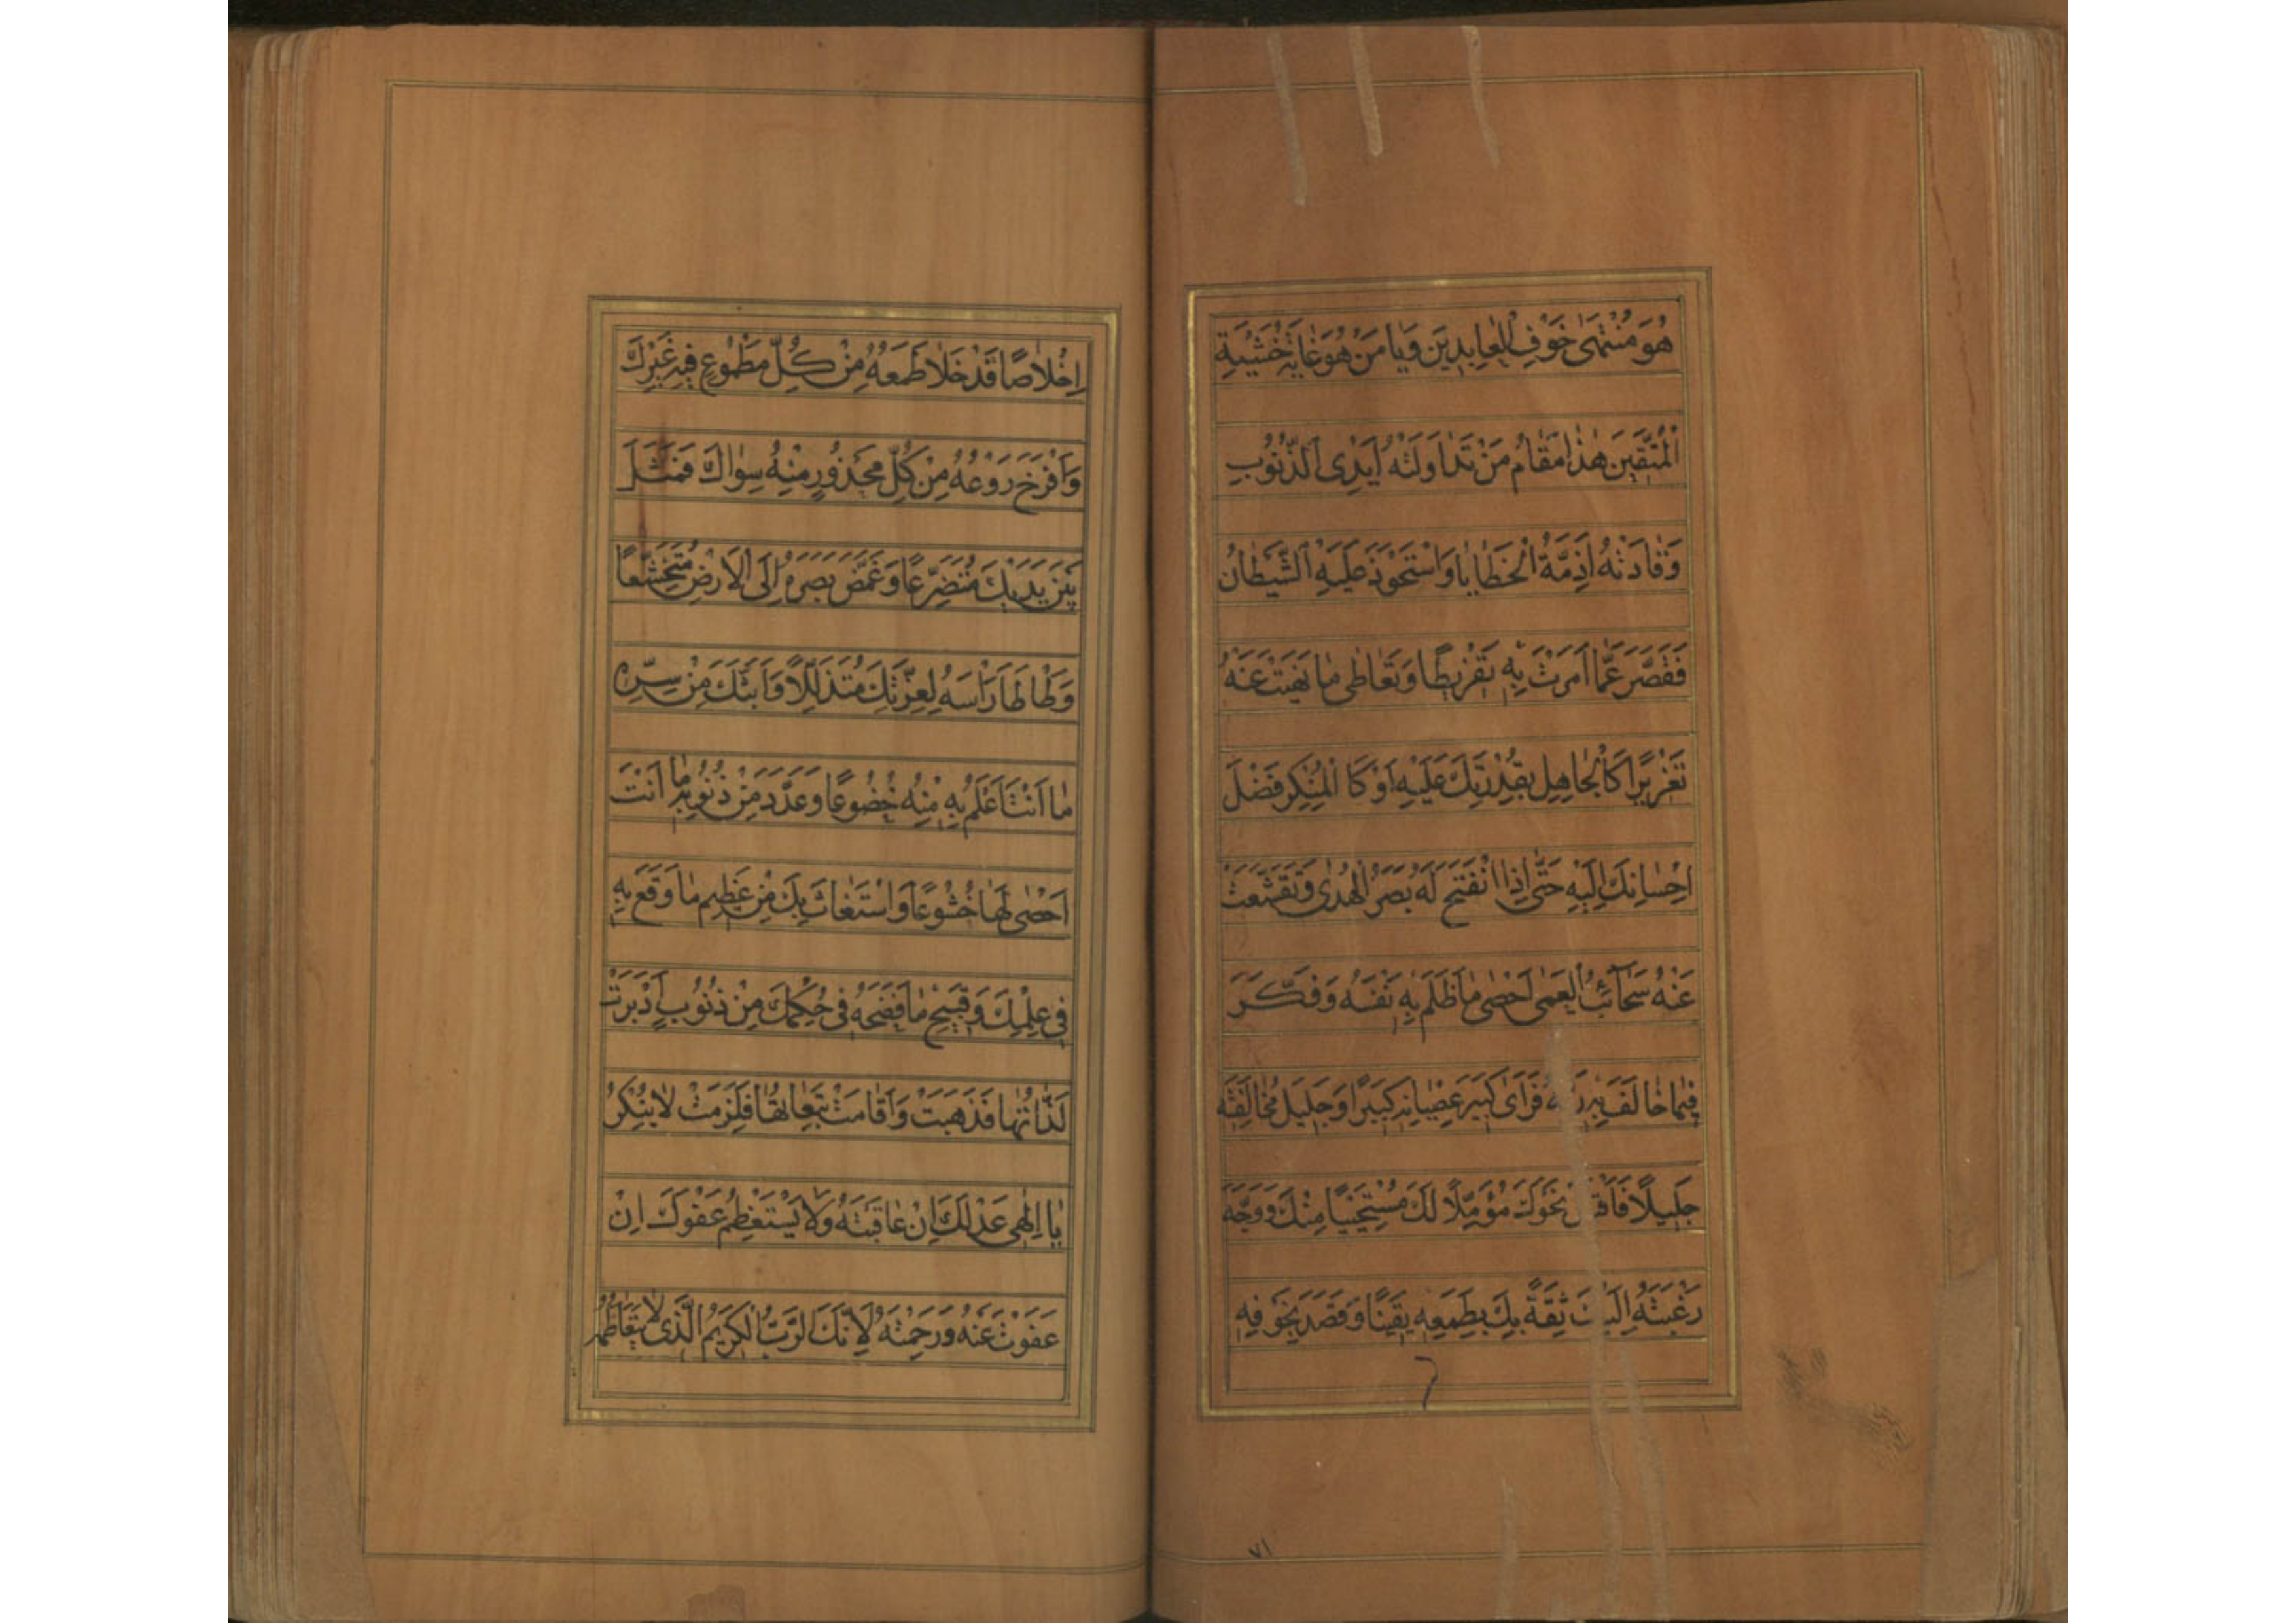 هُوَ مُنْتَهٰى خَوْفِ الْعٰابِدِيْنَ وَيٰا مَنْ هُوَ غٰايَةُ خَشْيَةِ
الْمُتَّقِيْنَ هٰذٰا مَقٰامُ مَنْ تَدٰاوَلَتْهُ اَيْدِى الذُّنُوْبِ
وَقٰادَتْهُ اَزِمَّةُ الْخَطٰايٰا وَاسْتَحْوَذَ عَلَيْهِ الشَّيْطٰانُ
فَقَصَّرَ عَمّٰا اَمَرْتَ بِهٖ تَفْرِيْطًا وَتَعٰاطٰى مٰا نَهَيْتَ عَنْهُ
تَغْرِيْرًا كَالْجٰاهِلِ بِقُدْرَتِكَ عَلَيْهِ اَوْ كَالْمُنْكِرِ فَضْلَ
اِحْسٰانِكَ اِلَيْهِ حَتّٰى اِذَا انْفَتَحَ لَهُ بَصَرُ الْهُدٰى وَتَقَشَّعَتْ
عَنْهُ سَحٰائِبُ الْعَمٰى اَحْصٰى مٰا ظَلَمَ بِهٖ نَفْسَهُ وَفَكَّرَ
فِيْمٰا خٰالَفَ بِهٖ فَرَاٰى كَبِيْرَ عِصْيٰانِهٖ كَبِيْرًا وَجَلِيْلَ مُخٰالَفَتِهٖ
جَلِيْلًا نَحْوَكَ مُؤَمِّلًا لَكَ مُسْتَحْيِيًا مِنْكَ وَوَجَّهَ
رَغْبَتَهُ اِلَيْكَ ثِقَةً بِكَ بِطَمَعِهٖ يَقِيْنًا وَقَصَدَ بِخَوْفِهٖ
٧١
اِخْلٰاصًا قَدْ خَلٰا طَمَعُهُ مِنْ كُلِّ مَطْمُوْعٍ فِيْهِ غَيْرِكَ
وَاَفْرَخَ رَوْعُهُ مِنْ كُلِّ مَحْذُوْرٍ مِنْهُ سِوٰاكَ فَمَثَلَ
بَيْنَ يَدَيْكَ مُتَضَرِّعًا وَغَمَّضَ بَصَرَهُ اِلَى الْاَرْضِ مُتَخَشِّعًا
وَطٰاطَا رَاْسَهُ لِعِزَّتِكَ مُتَذَلِّلًا وَاَبَثَّكَ مِنْ سِرِّهٖ
مٰا اَنْتَ اَعْلَمُ بِهٖ مِنْهُ خُضُوْعًا وَعَدَّدَ مِنْ ذُنُوْبِهٖ مٰا اَنْتَ
اَحْصٰى لَهٰا خُشُوْعًا وَاسْتَغٰاثَ بِكَ مِنْ عَظِيْمِ مٰا وَقَعَ بِهٖ
فِى عِلْمِكَ وَقَبِيْحِ مٰا فَضَحَهُ فِى حُكْمِكَ مِنْ ذُنُوْبٍ اَدْبَرَتْ
لَذّٰاتُهٰا فَذَهَبَتْ وَاَقٰامَتْ تَبِعٰاتُهٰا فَلَزِمَتْ لٰا يُنْكِرُ
يٰا اِلٰهِى عَدْلَكَ اِنْ عٰاقَبْتَهُ وَلٰا يَسْتَعْظِمُ عَفْوَكَ اِنْ
عَفَوْتَ عَنْهُ وَرَحِمْتَهُ لِاَنَّكَ الرَّبُّ الْكَرِيْمُ الَّذِى لٰا يَتَعٰاظَمُهُ